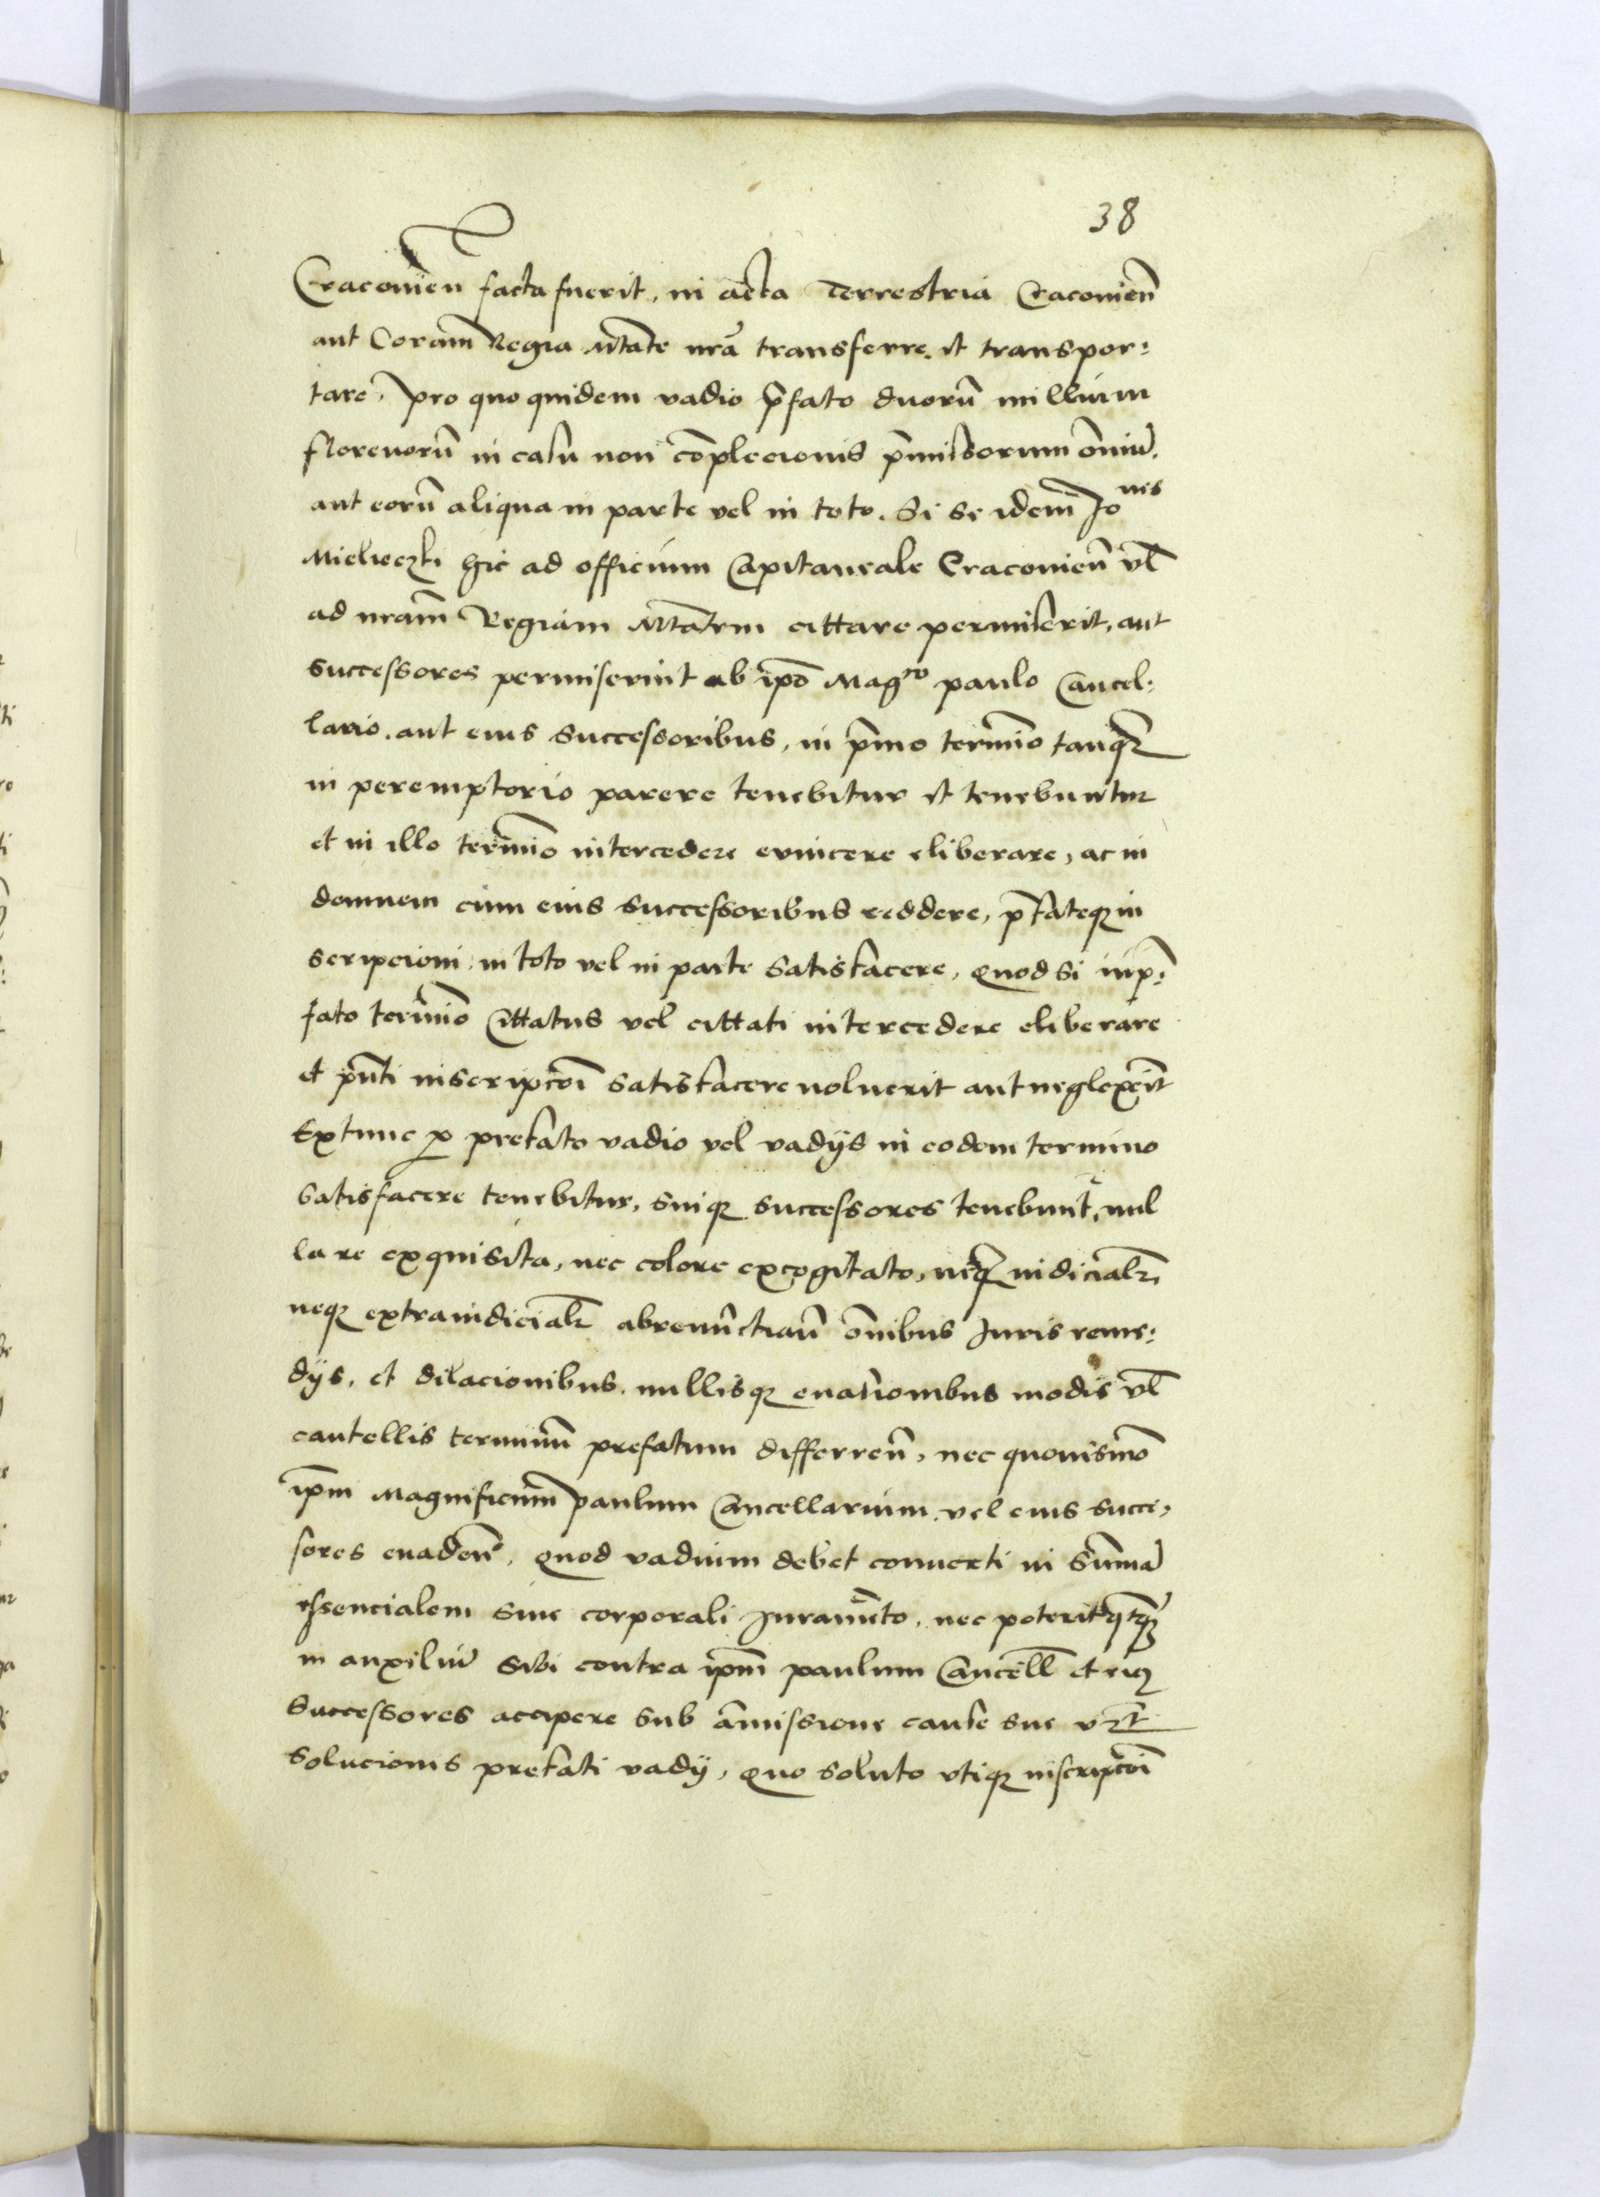 38
Cracovien̄ facta fuerit, in acta Terrestria Cracovien̄
aut Coram Regia Mtate nrā transferre et transpor:
tare, pro quo quidem vadio p̄fato duorū millium
florenorū in casu non cōplecionis p̄missorum om̄iū.
aut eorū aliqua in parte vel in toto. Si se idem Jo nes
Mielieczki hic ad officium Capitaneale Cracovien̄ vl̄
ad nram̄ Regiam Mtatem cittare permiserit, aut
successores permiserint ab ip̄o Magco paulo Cancel:
lario, aut eius successoribus, in p̄mo termīo tanqȝ
in peremptorio parere tenebitur et tenebuntur
et in illo termīo intercedere evincere eliberare, ac in
demnem cum eius successoribus reddere, p̄fateqȝ in
scripcioni in toto vel in parte satisfacere, quod si in p̄:
fato termīo Cittatus vel cittati intercedere eliberare
et p̄nti inscripcōi satisfacere noluerit aut neglexerit
Extunc ꝓ prefato vadio vel vadijs in eodem termino
satisfacere tenebitur, suiqȝ successores tenebunt, nul
la re exquisita, nec colore excogitato, neqȝ iudicialr̄
neqȝ extraiudicialr̄ abrenūctiān̄ om̄ibus Juris reme:
dijs, et dilacionibus, nullisqȝ evationibus modis vl̄
cautellis terminū prefatum differen̄, nec quovismō
ip̄m Magnificum paulum Cancellarium vel eius succe,
sores evaden̄, quod vadium debet converti in sum̄ā
essencialem sine corporali Juramēto, nec poterit
in auxiliū sibi contra ip̄m paulum Cancell̄ et eiꝰ
successores accipere sub amissione cause sue
solucionis prefati vadij, quo soluto vtiqȝ inscripcōi